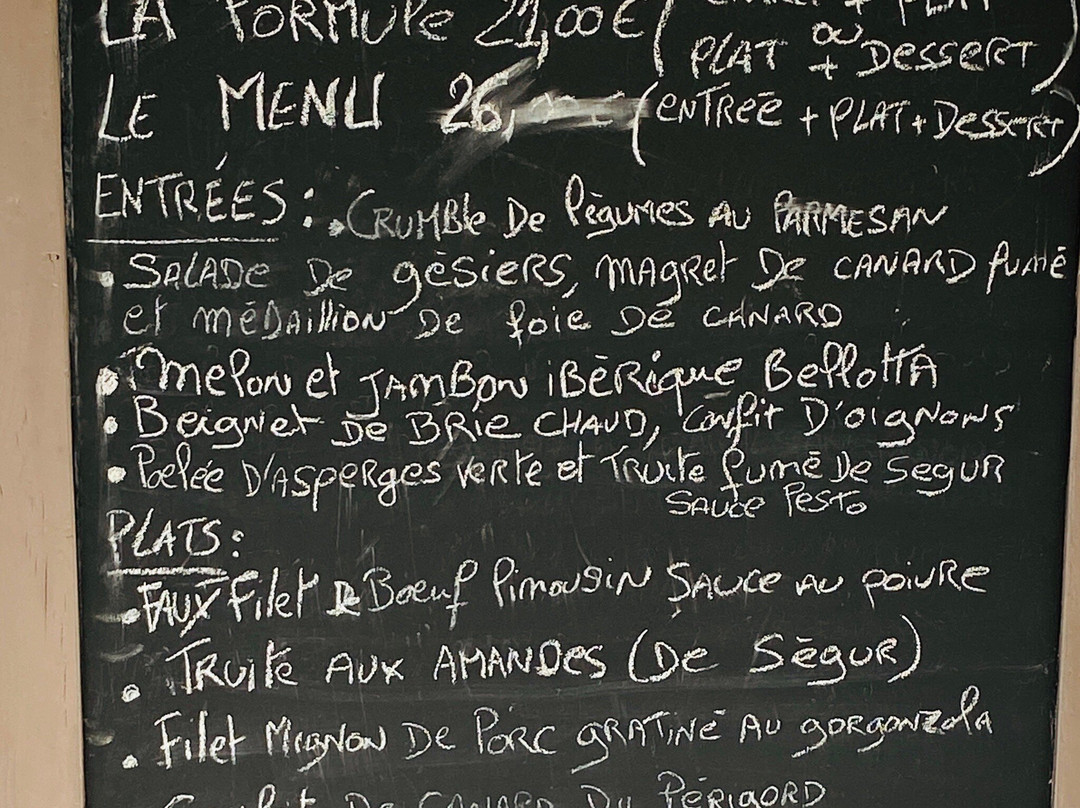 LA FORMULE 21,00€ ( ENTRÉE + PLAT
ou
PLAT + DESSERT )
LE MENU 26, (ENTREE + PLAT + DESSERT)
ENTRÉES : . CRUMBle De légumes AU PARMESAN
• SALADe De gésiers, magret De CANARD fumé
et médaillion De foie De CANARD
• melon et JAMBON iBÉRique BelloTTA
• Beignet De BRie CHAUD, confit D'oignons
• Poelée D'Asperges verte et Truite fumé De Segur
SAUCE Pesto
PLATS :
• FAUX Filet De Boeuf limousin SAUCE AU poivre
• TRuite AUX AMANDes (De Ségur)
• Filet Mignon De Porc gratiné AU gorgonzola
Confit De CANARD Du PÉRIGORD